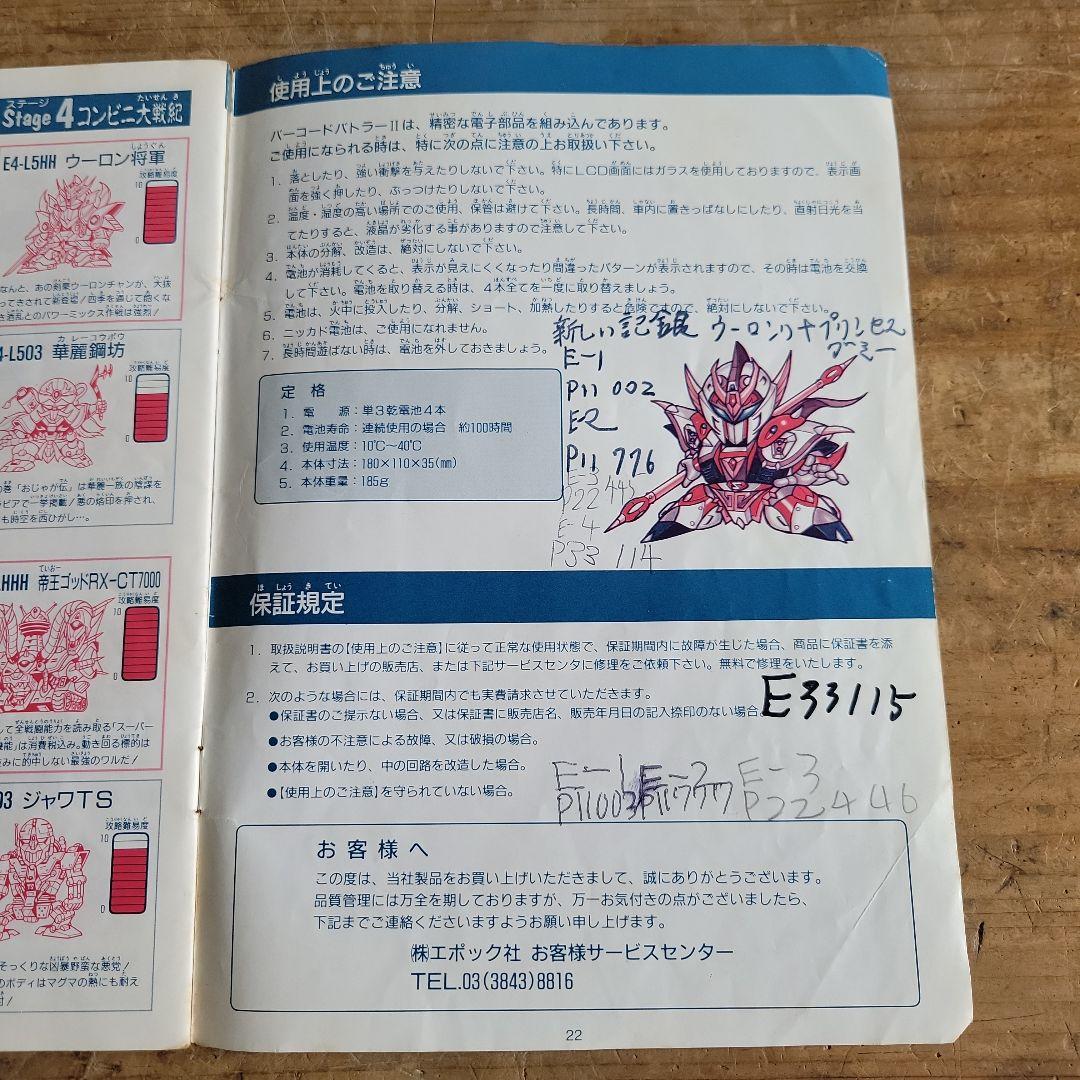 ステージ たいせんき
Stage 4 コンビニ大戦紀
しょうぐん
E4-L5HH ウーロン将軍
攻略難易度
10
0
なんと、あの剣豪ウーロンチャンが、大抜
ってきされて新登場!四季を通じて飽くな
き酒乱とのパワーミックス作戦は強烈!
カレーコウボウ
4-L503 華麗鋼坊
攻略難易度
10
0
の巻「おじゃが伝」は華麗一族の陰謀を
ラビアで一挙掲載!悪の烙印を押され、
も時空を西ひがし…。
ていおー
HHH 帝王ゴッドRX-CT7000
攻略難易度
10
0
して全戦闘能力を読み取る「スーパー
機能」は消費税込み。動き回る標的は
さみに的中しない最強のワルだ!
93 ジャワTS
攻略難易度
10
0
そっくりな凶暴野蛮な悪党!
のボディはマグマの熱にも耐え
付!
しようじょう ちゅうい
使用上のご注意
バーコードバトラーIIは、精密な電子部品を組み込んであります。
ご使用になられる時は、特に次の点に注意の上お取扱い下さい。
1. 落としたり、強い衝撃を与えたりしないで下さい。特にLCD画面にはガラスを使用しておりますので、表示画
面を強く押したり、ぶっつけたりしないで下さい。
2. 温度・湿度の高い場所でのご使用、保管は避けて下さい。長時間、車内に置きっぱなしにしたり、直射日光を当
てたりすると、液晶が劣化する事がありますので注意して下さい。
3. 本体の分解、改造は、絶対にしないで下さい。
4. 電池が消耗してくると、表示が見えにくくなったり間違ったパターンが表示されますので、その時は電池を交換
して下さい。電池を取り替える時は、4本全てを一度に取り替えましょう。
5. 電池は、火中に投入したり、分解、ショート、加熱したりすると危険ですので、絶対にしないで下さい。
6. ニッカド電池は、ご使用になれません。
7. 長時間遊ばない時は、電池を外しておきましょう。
新しい記録 ウーロン(ナプリンセス
E-1
P11 002
E-2
P11 776
E-3
P22 445
E-4
P33 114
定格
1. 電 源:単3乾電池4本
2. 電池寿命:連続使用の場合 約100時間
3. 使用温度:10℃~40℃
4. 本体寸法:180×110×35(mm)
5. 本体重量:185g
ほしょうきてい
保証規定
1. 取扱説明書の【使用上のご注意】に従って正常な使用状態で、保証期間内に故障が生じた場合、商品に保証書を添
えて、お買い上げの販売店、または下記サービスセンタに修理をご依頼下さい。無料で修理をいたします。
2. 次のような場合には、保証期間内でも実費請求させていただきます。
●保証書のご提示ない場合、又は保証書に販売店名、販売年月日の記入捺印のない場合。
E33115
●お客様の不注意による故障、又は破損の場合。
●本体を開いたり、中の回路を改造した場合。
●【使用上のご注意】を守られていない場合。
E-1 E-2 E-3
P11003 P11777 P22446
お客様へ
この度は、当社製品をお買い上げいただきまして、誠にありがとうございます。
品質管理には万全を期しておりますが、万一お気付きの点がございましたら、
下記までご連絡くださいますようお願い申し上げます。
㈱エポック社 お客様サービスセンター
TEL.03(3843)8816
22